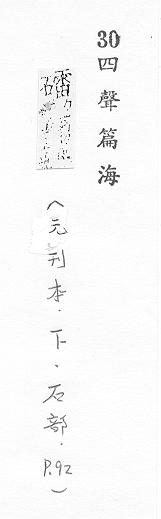 30四聲篇海
礌
(元刊本.下.石部.P.92)